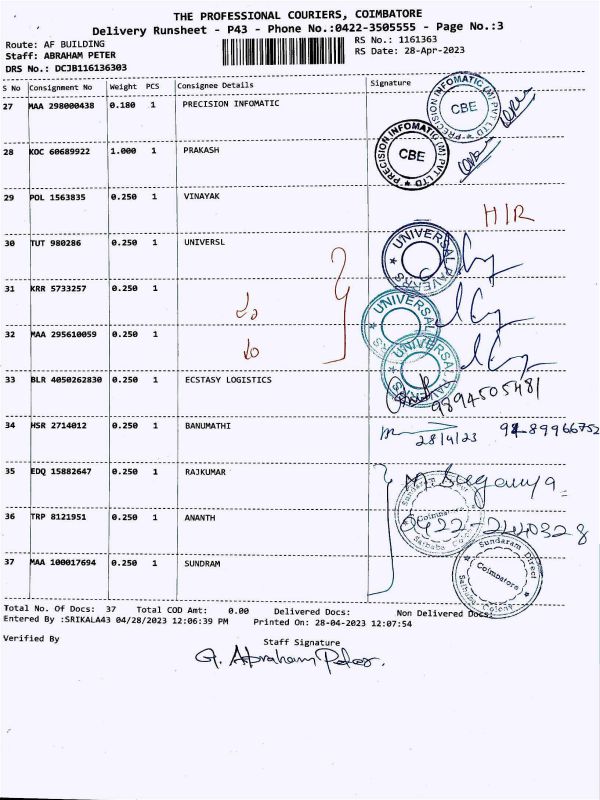 THE PROFESSIONAL COURIERS, COIMBATORE
Delivery Runsheet - P43 - Phone No.:0422-3505555 - Page No.:3
Route: AF BUILDING
RS No.: 1161363
Staff: ABRAHAM PETER
RS Date: 28-Apr-2023
DRS No.: DCJB116136303
S No Consignment No Weight PCS Consignee Details Signature
27 MAA 298000438 0.180 1 PRECISION INFOMATIC
PRECISION INFOMATIC (M) PVT LTD
CBE
28 KOC 60689922 1.000 1 PRAKASH
PRECISION INFOMATIC (M) PVT LTD
CBE
29 POL 1563835 0.250 1 VINAYAK
H/R
30 TUT 980286 0.250 1 UNIVERSL
UNIVERSAL PAVERRS
31 KRR 5733257 0.250 1
UNIVERSAL
32 MAA 295610059 0.250 1
UNIVERSAL
33 BLR 4050262830 0.250 1 ECSTASY LOGISTICS
9894505481
34 HSR 2714012 0.250 1 BANUMATHI
28/4/23
35 EDQ 15882647 0.250 1 RAJKUMAR
M. Suganya
Coimbatore
36 TRP 8121951 0.250 1 ANANTH
37 MAA 100017694 0.250 1 SUNDRAM
Sundaram Direct
Coimbatore
Saibaba Colony
Total No. Of Docs: 37 Total COD Amt: 0.00 Delivered Docs: Non Delivered Docs:
Entered By :SRIKALA43 04/28/2023 12:06:39 PM Printed On: 28-04-2023 12:07:54
Verified By
Staff Signature
G. Abraham Peter.